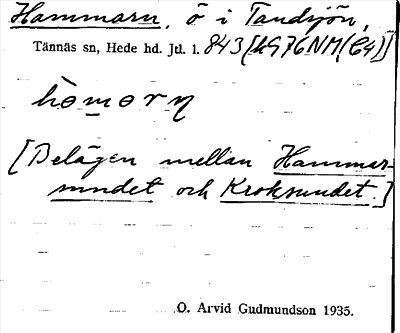 Hammarn, ö i Tandsjön,
Tännäs sn, Hede hd. Jtl. l. 843
hòmorn
[Belägen mellan Hammar-
sundet och Kroksundet.]
O. Arvid Gudmundson 1935.